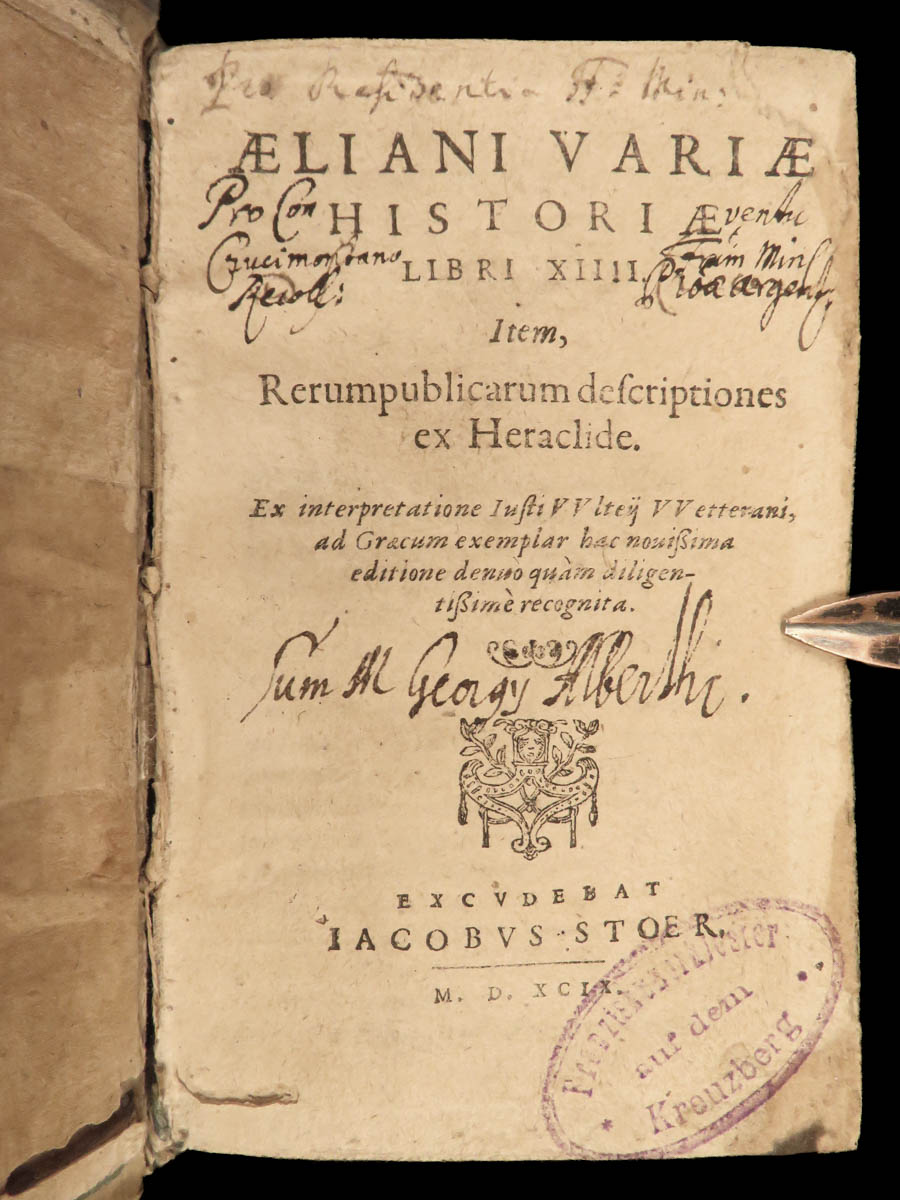 Pro Residentia FF: Min:
ÆLIANI VARIÆ
HISTORIÆ
Pro Con ventu
LIBRI XIIII.
Crucimontano Frũm Min
Recoll:
Item,
Rerumpublicarum deſcriptiones
ex Heraclide.
Ex interpretatione Iuſti VVlteij VVetterani,
ad Græcum exemplar hac nouißima
editione denuo quàm diligen-
tißimè recognita.
Sum M Georgy Alberthi.
EXCVDEBAT
IACOBVS STOER.
M. D. XCIX.
Franziskanerkloster
auf dem
Kreuzberg